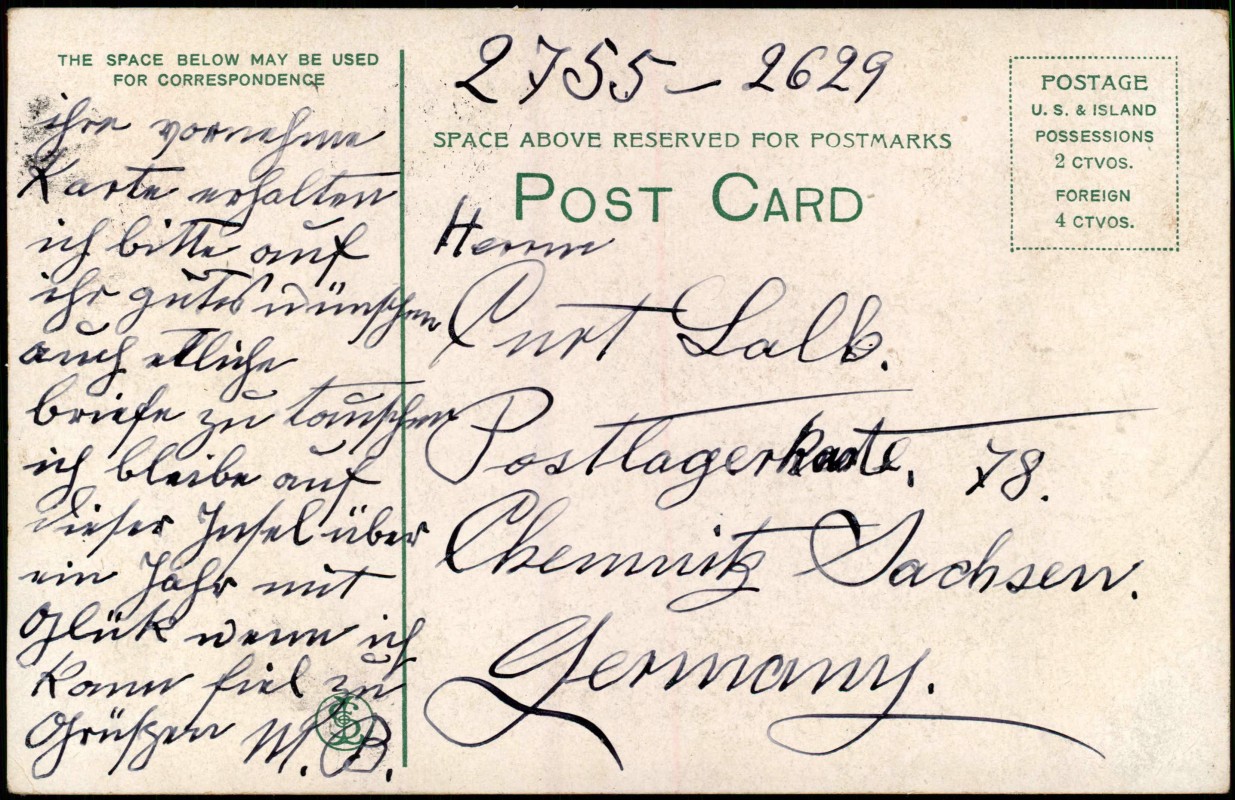 THE SPACE BELOW MAY BE USED
FOR CORRESPONDENCE
ihre vornehme
Karte erhalten
ich bitte auf
ihr gutes wünschen
auch etliche
briefe zu tauschen
ich bleibe auf
dieser Insel über
ein Jahr mit
Glük wenn ich
kann fiel zu
Grüßen M. B.
2755 – 2629
SPACE ABOVE RESERVED FOR POSTMARKS
POST CARD
Herrn
Curt Lalb.
Postlagerkarte. 78.
Chemnitz Sachsen.
Germany.
POSTAGE
U. S. & ISLAND
POSSESSIONS
2 CTVOS.
FOREIGN
4 CTVOS.